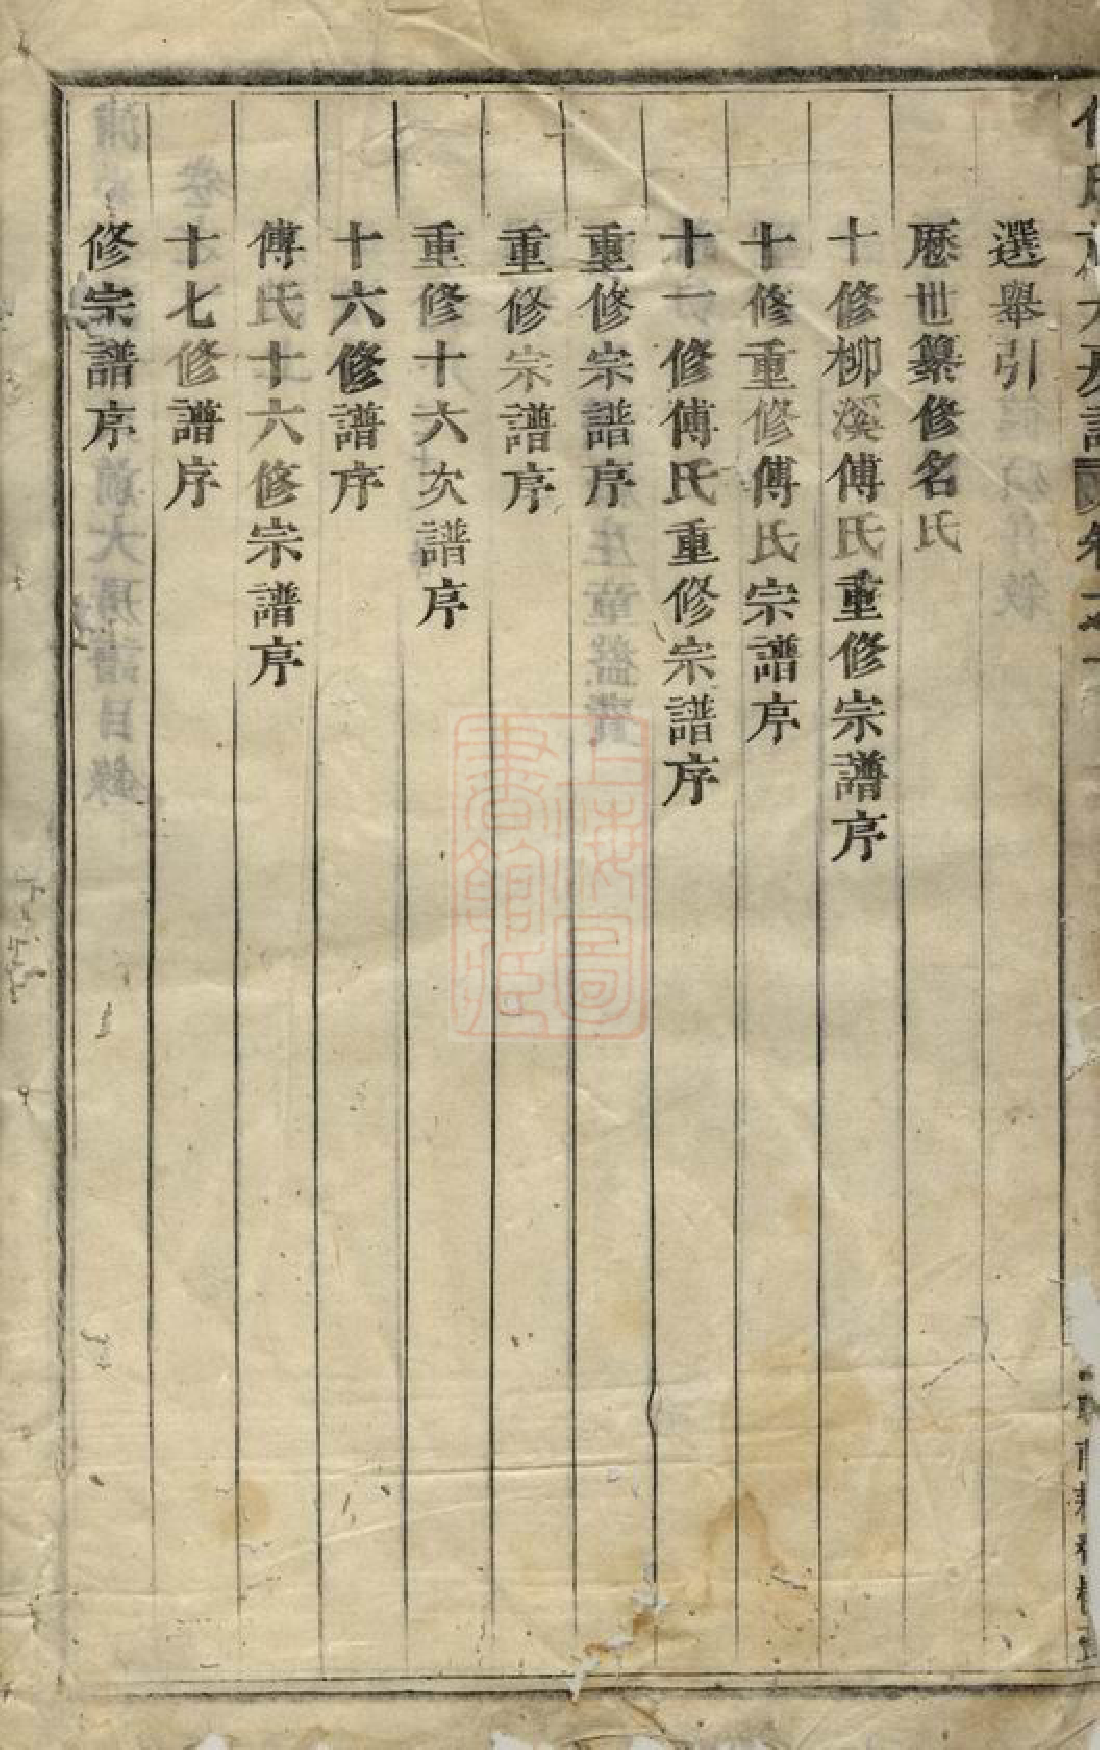 選舉引
歷世纂修名氏
十修柳溪傅氏重修宗譜序
十修重修傅氏宗譜序
十一修傅氏重修宗譜序
重修宗譜序
重修宗譜序
重修十六次譜序
十六修譜序
傅氏十六修宗譜序
十七修譜序
修宗譜序
上海圖書館藏